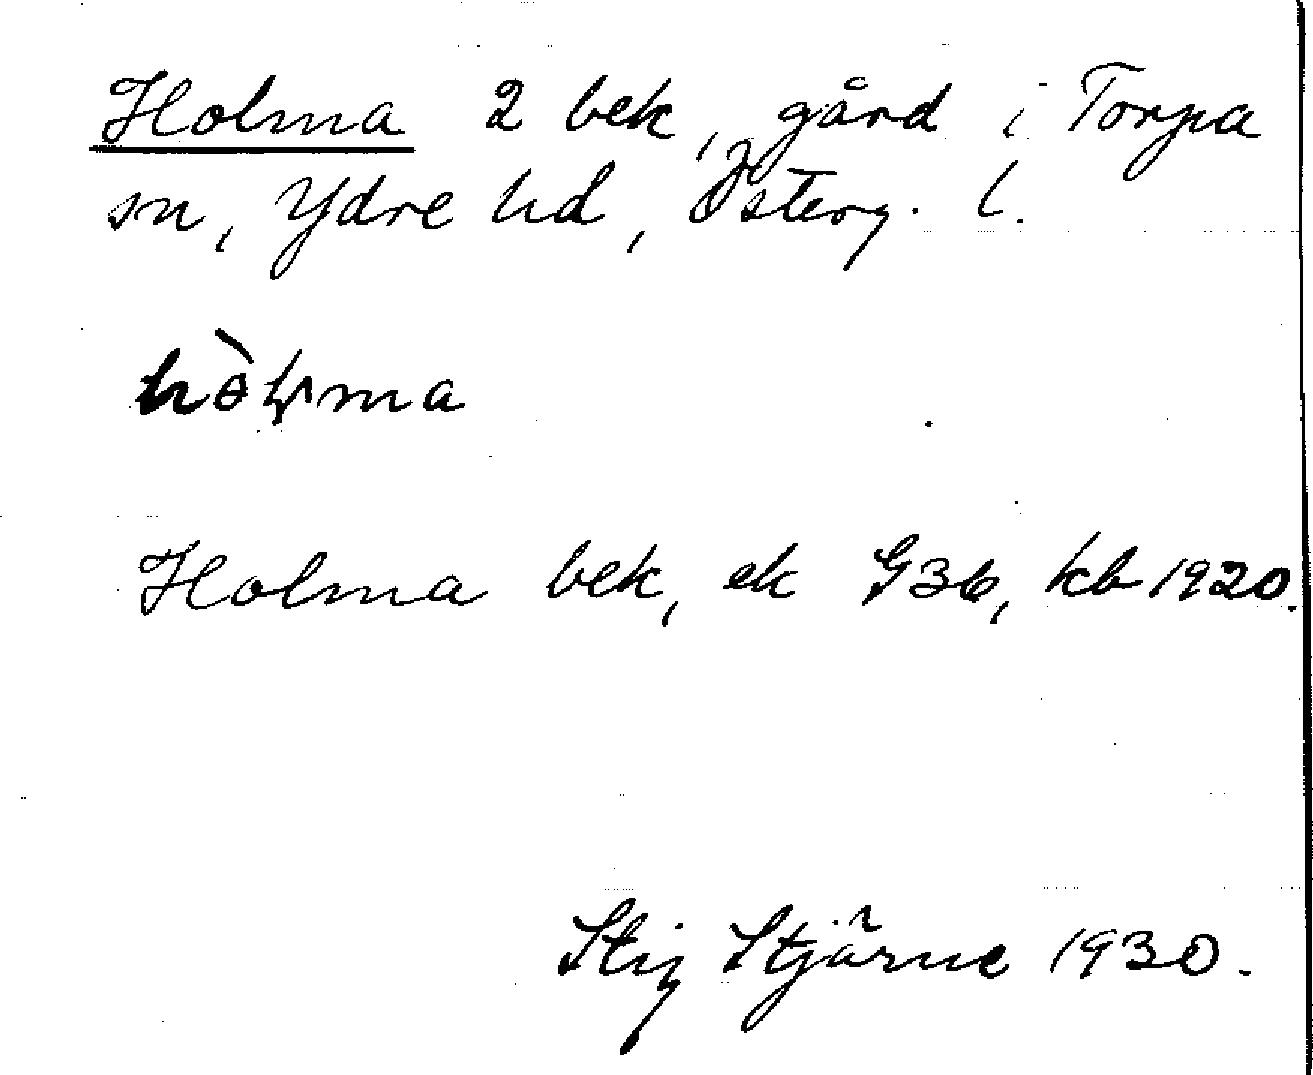 Holma 2 bek, gård i Torpa
sn, Ydre hd, Österg. l.
Holma bek, ek G36, kb 1920.
Stig Stjärne 1930.